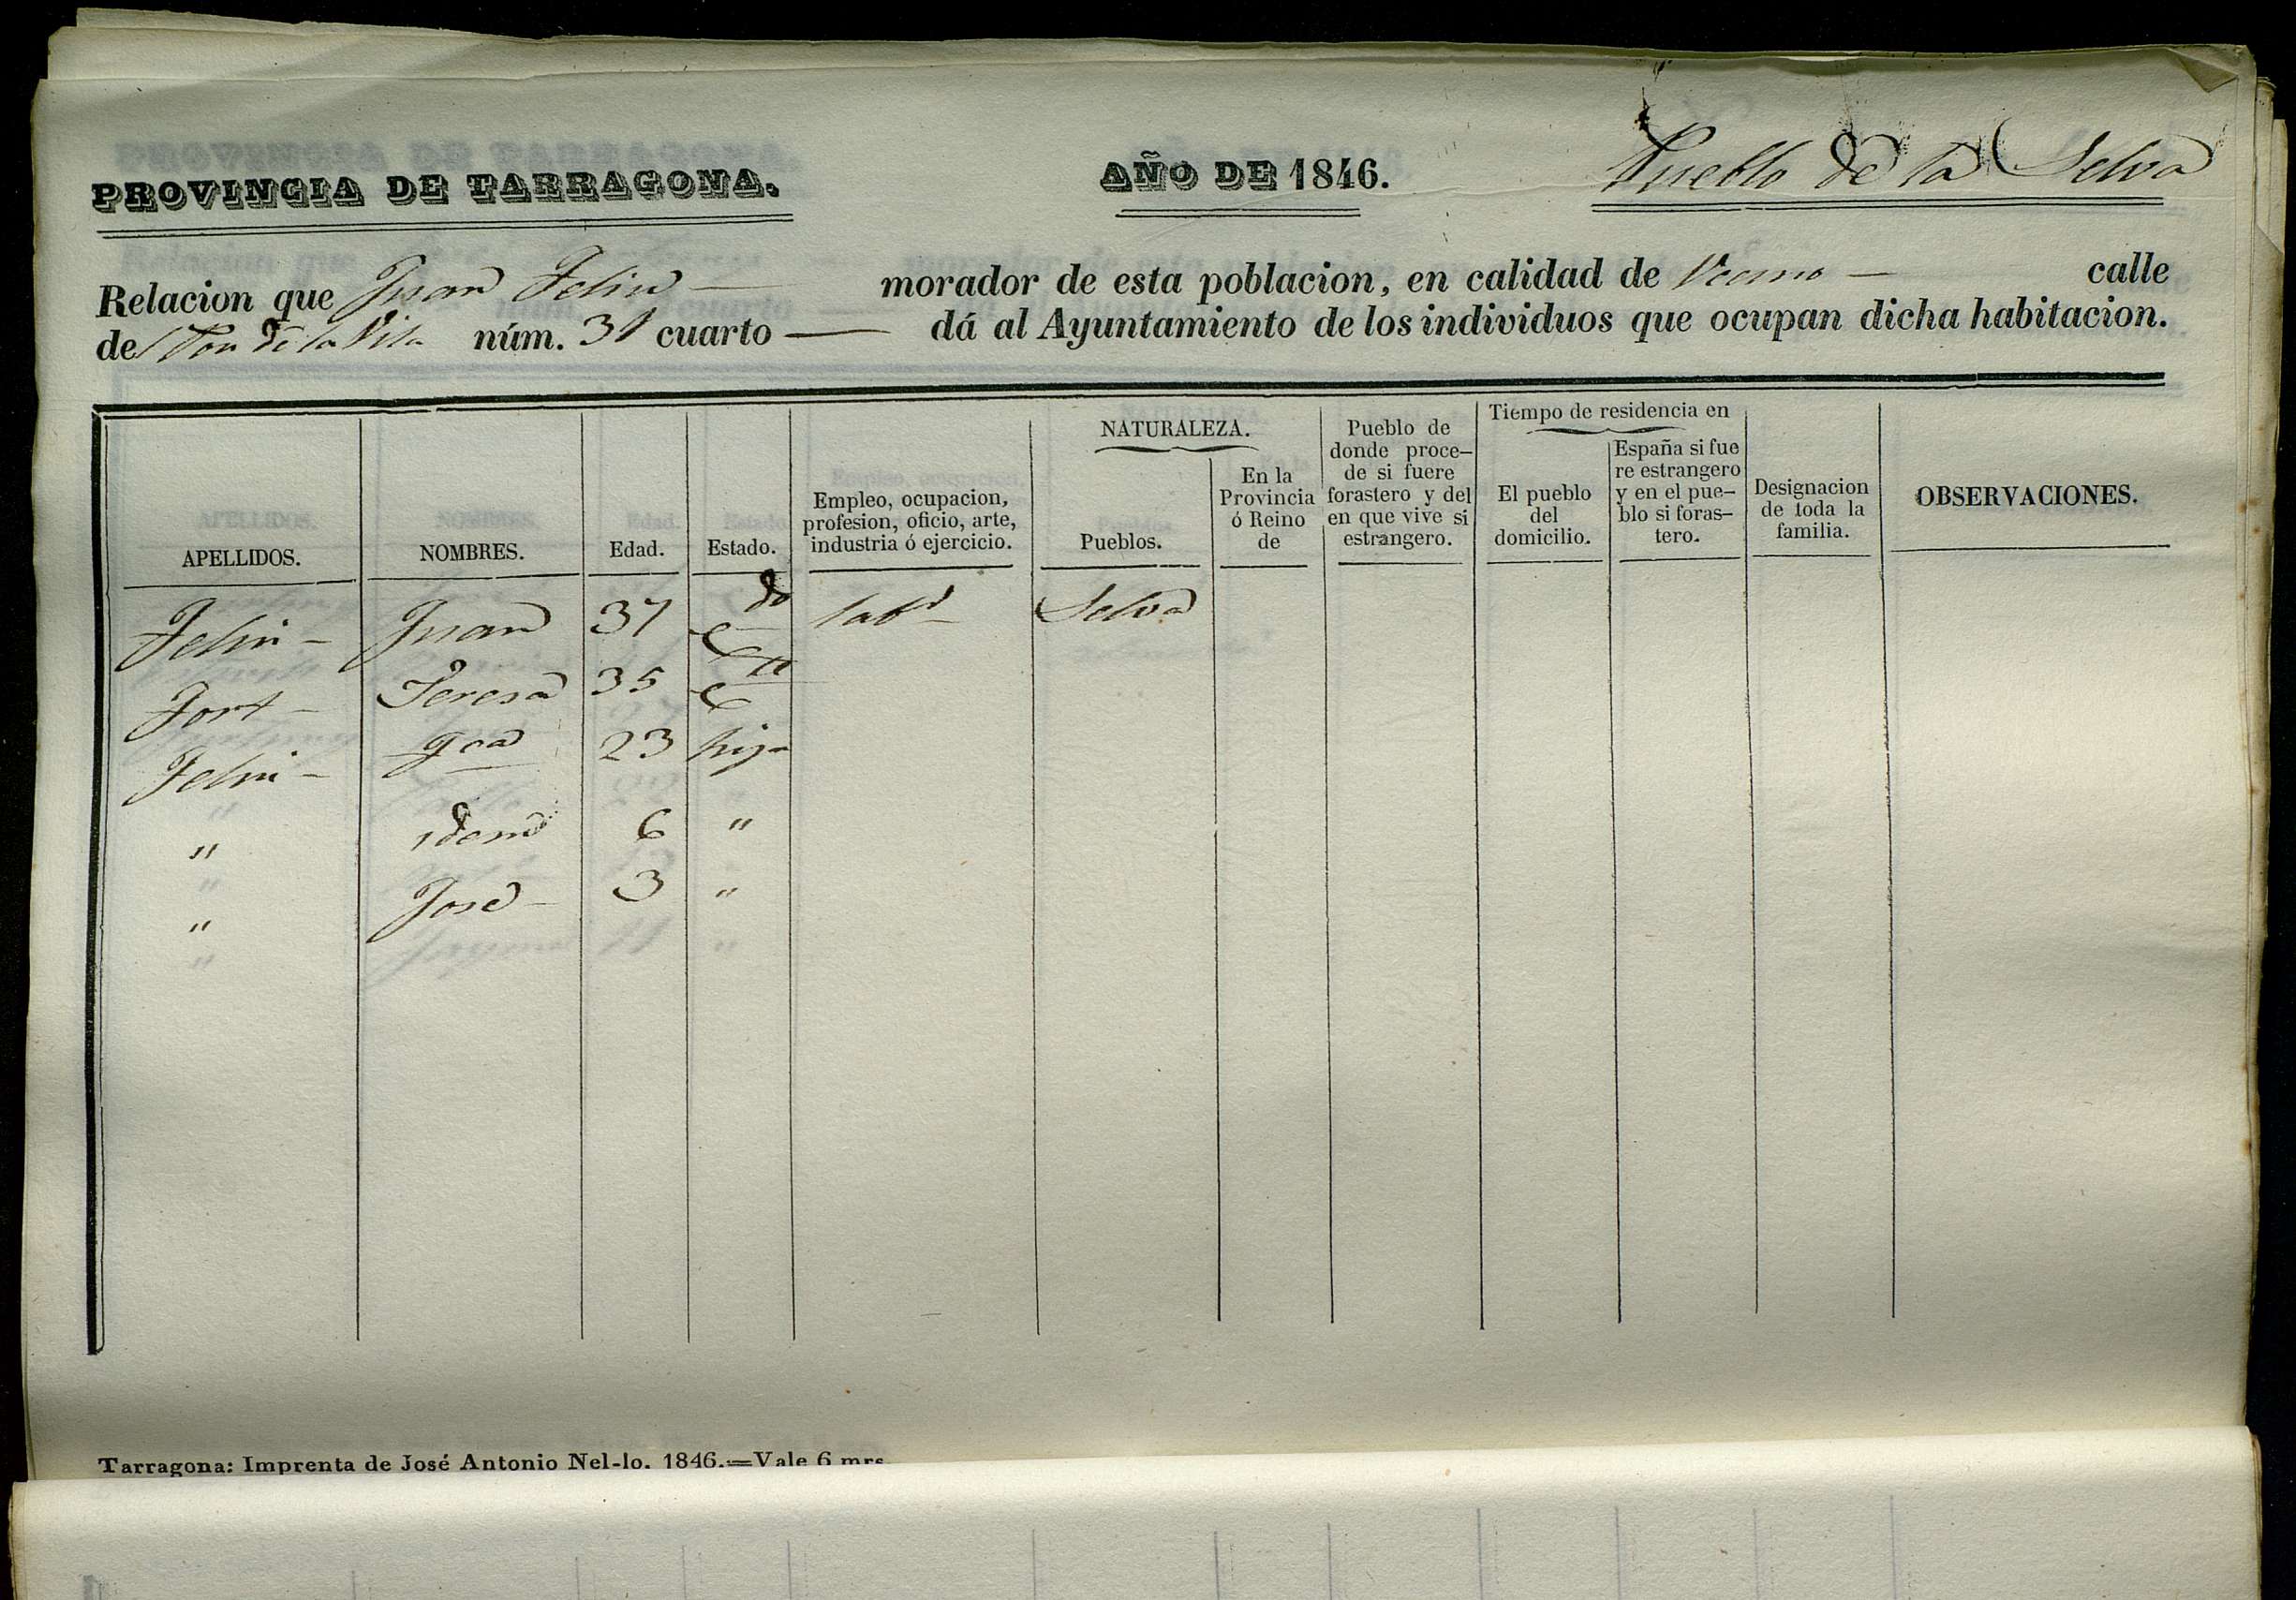 PROVINCIA DE TARRAGONA.
AÑO DE 1846.
Pueblo de la Selva
Relacion que Juan Feliu — morador de esta poblacion, en calidad de Vecino — calle
de de la Vila núm. 31 cuarto — dá al Ayuntamiento de los individuos que ocupan dicha habitacion.
APELLIDOS.
NOMBRES.
Edad.
Estado.
Empleo, ocupacion,
profesion, oficio, arte,
industria ó ejercicio.
NATURALEZA.
Pueblos.
En la
Provincia
ó Reino
de
Pueblo de
donde proce-
de si fuere
forastero y del
en que vive si
estrangero.
Tiempo de residencia en
El pueblo
del
domicilio.
España si fue
re estrangero
y en el pue-
blo si foras-
tero.
Designacion
de toda la
familia.
OBSERVACIONES.
Feliu - Juan 37 Cdo labr Selva
Fort - Teresa 35 Cta
Feliu - 23 hija
" idem 6 "
" José - 3 "
Tarragona: Imprenta de José Antonio Nel-lo. 1846.=Vale 6 mrs